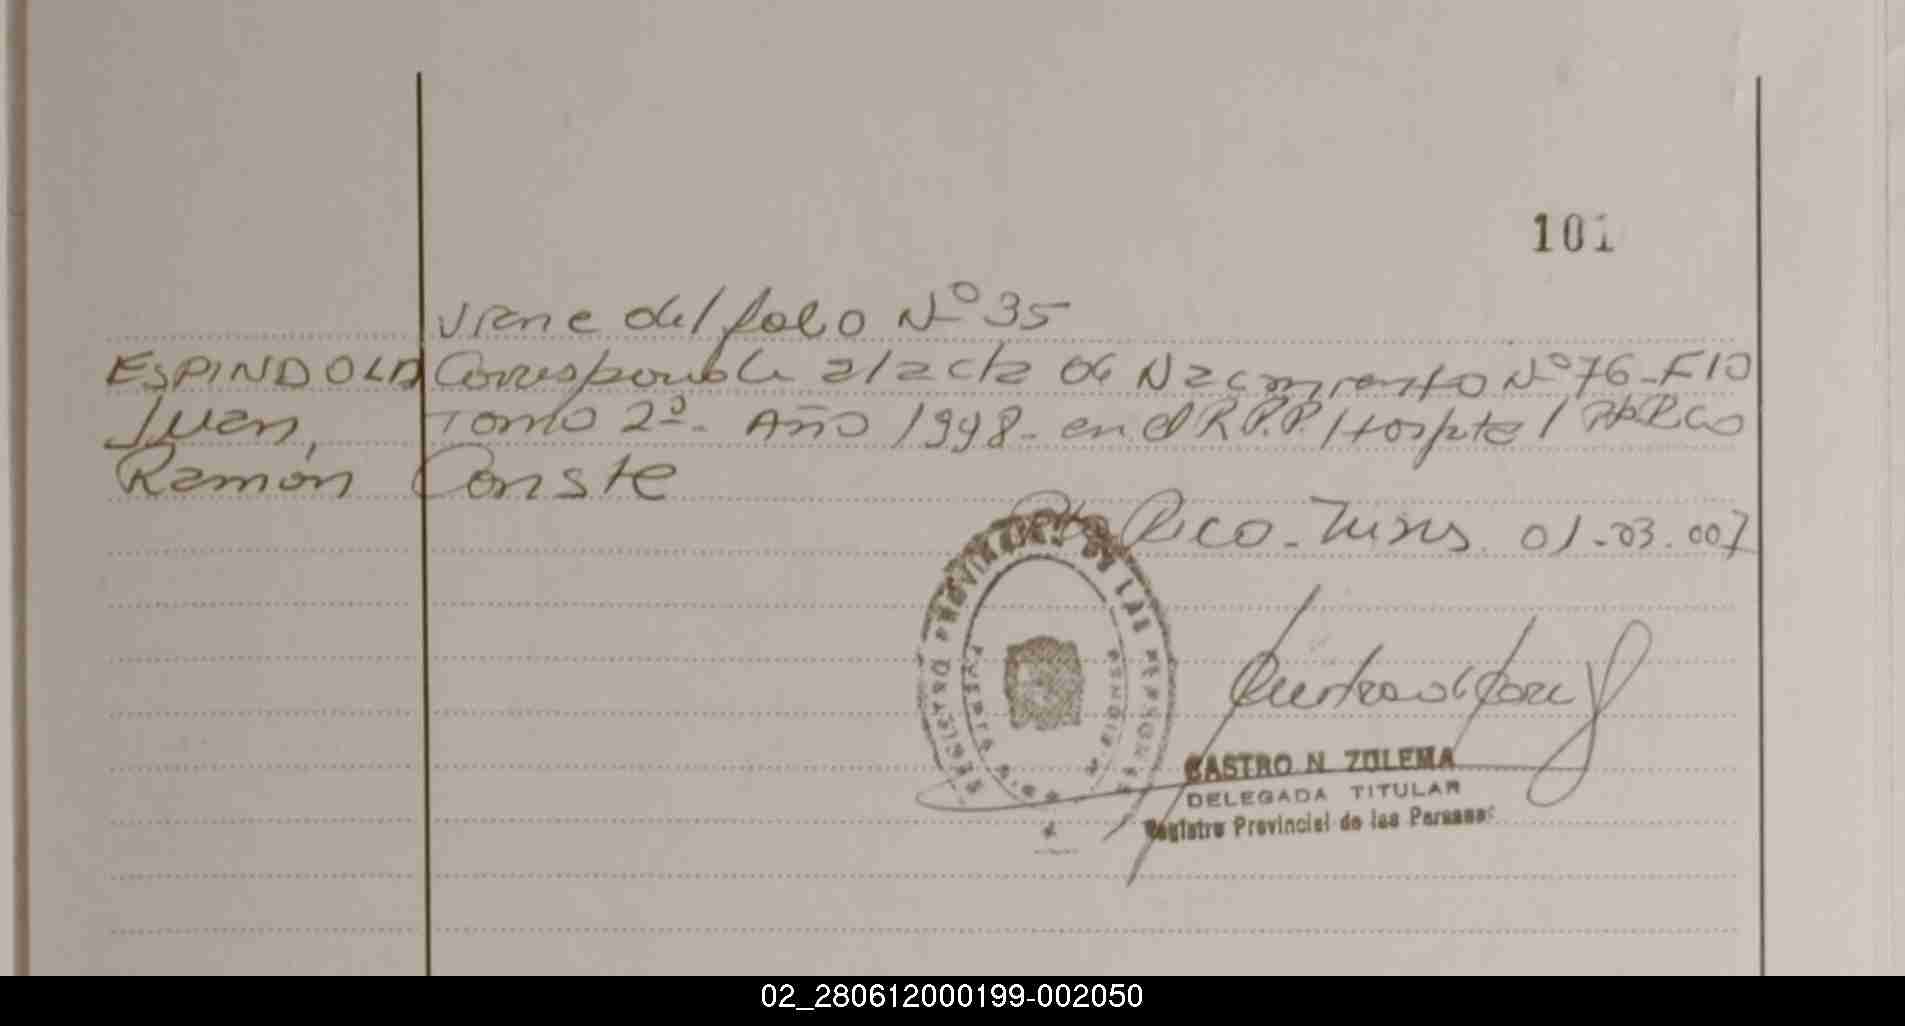 101
viene del folio Nº 35
ESPINDOLA Corresponde al acta de Nacimiento Nº 76-F10
Juan, Tomo 2º- Año 1998- en el R.P.P. Hospital Pto Rico
Ramón Conste
Pto Rico - Mnes. 01-03.007
REGISTRO PROVINCIAL DE LAS PERSONAS
CASTRO N. ZULEMA
DELEGADA TITULAR
Registro Provincial de las Personas
02_280612000199-002050